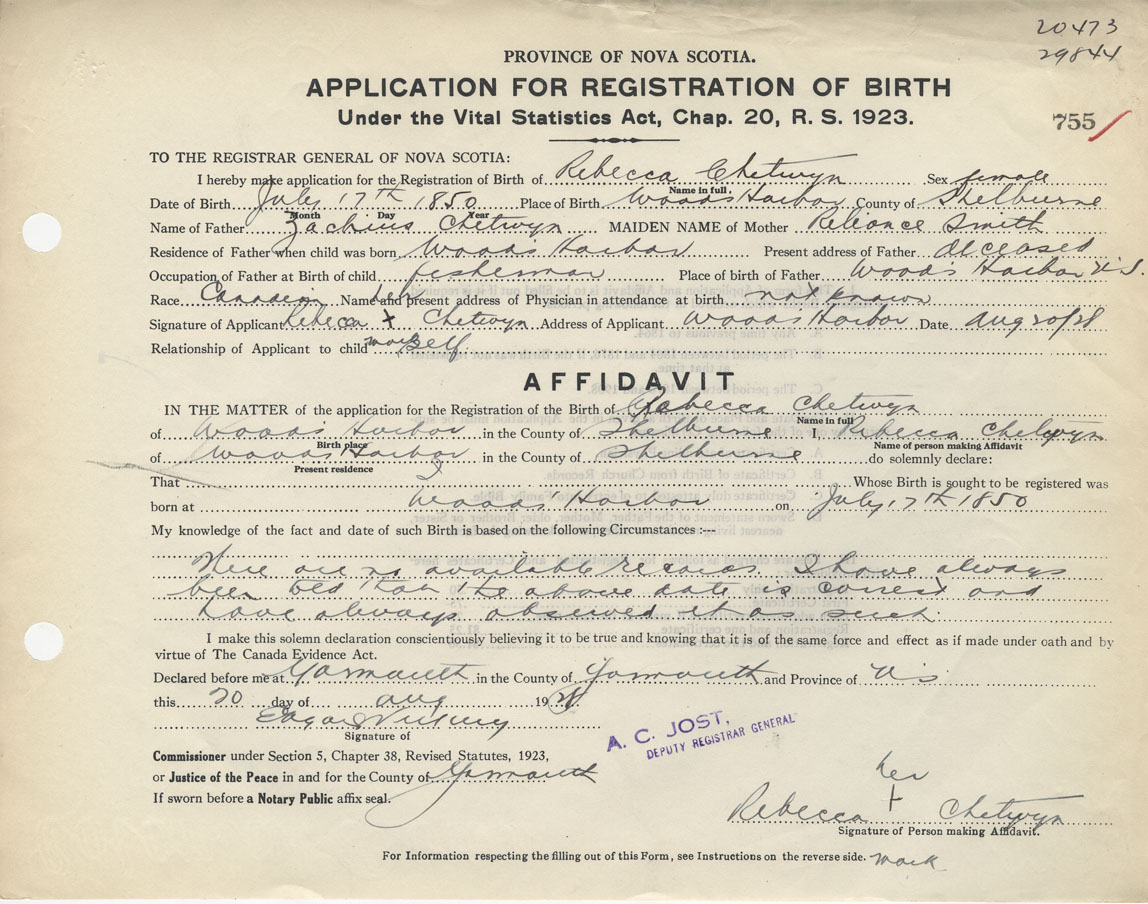 20473
29844
PROVINCE OF NOVA SCOTIA.
APPLICATION FOR REGISTRATION OF BIRTH
Under the Vital Statistics Act, Chap. 20, R. S. 1923.
755
TO THE REGISTRAR GENERAL OF NOVA SCOTIA:
I hereby make application for the Registration of Birth of Rebecca Chetwyn Sex female
Name in full.
Date of Birth July 17th 1850 Place of Birth Woods Harbor County of Shelburne
Month Day Year
Name of Father Zachius Chetwyn MAIDEN NAME of Mother Reliance Smith
Residence of Father when child was born Woods Harbor Present address of Father deceased
Occupation of Father at Birth of child fisherman Place of birth of Father Woods Harbor N.S.
Race Canadian Name and present address of Physician in attendance at birth not known
Signature of Applicant Rebecca + Chetwyn Address of Applicant Woods Harbor Date Aug 20/28
Relationship of Applicant to child mark Self
AFFIDAVIT
IN THE MATTER of the application for the Registration of the Birth of Rebecca Chetwyn
Name in full
of Woods Harbor in the County of Shelburne I, Rebecca Chetwyn
Birth place Name of person making Affidavit
of Woods Harbor in the County of Shelburne do solemnly declare:
Present residence
That I Whose Birth is sought to be registered was
born at Woods Harbor on July 17th 1850
My knowledge of the fact and date of such Birth is based on the following Circumstances :---
There are no available records. I have always
been told that the above date is correct and
have always observed it as such.
I make this solemn declaration conscientiously believing it to be true and knowing that it is of the same force and effect as if made under oath and by
virtue of The Canada Evidence Act.
Declared before me at Yarmouth in the County of Yarmouth and Province of N.S.
this 20 day of aug 1928
Signature of
A. C. JOST,
DEPUTY REGISTRAR GENERAL
Commissioner under Section 5, Chapter 38, Revised Statutes, 1923,
or Justice of the Peace in and for the County of Yarmouth
If sworn before a Notary Public affix seal.
her
Rebecca + Chetwyn
Signature of Person making Affidavit.
For Information respecting the filling out of this Form, see Instructions on the reverse side. mark